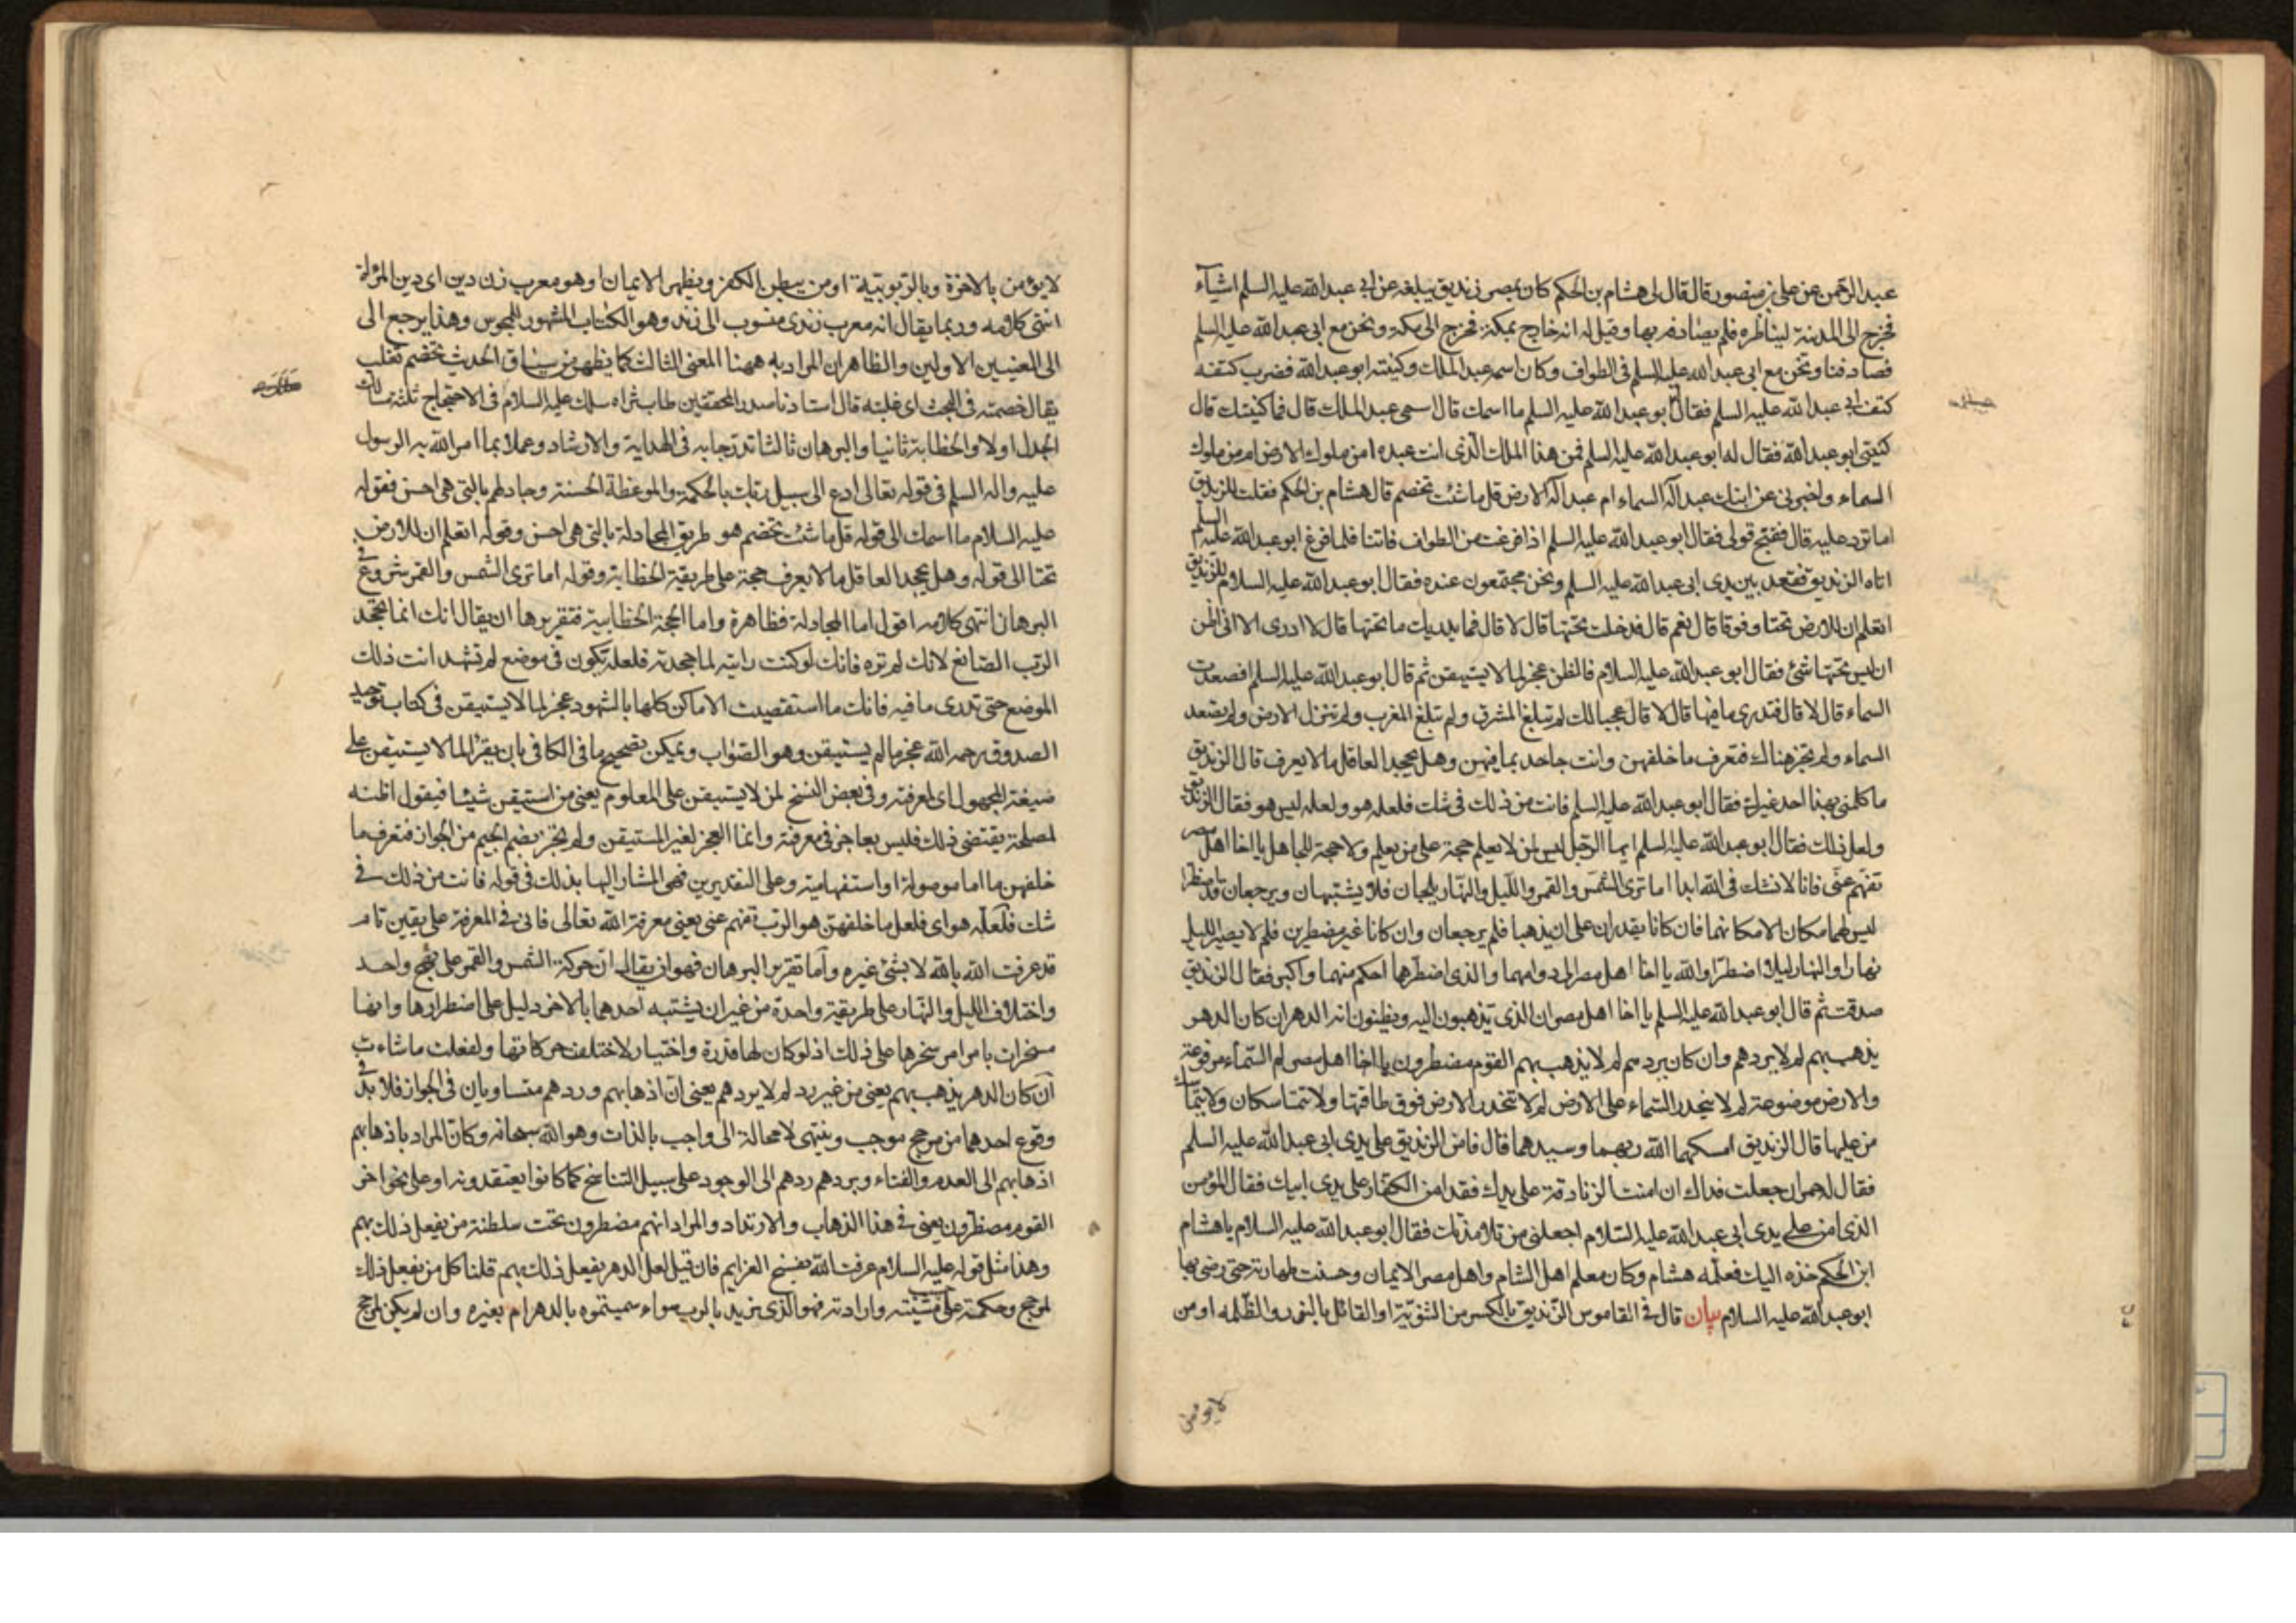 عبد الرحمن عن علي بن منصور قال قال لي هشام بن الحكم كان بمصر زنديق يبلغه عن ابي عبد الله عليه السلم اشياء
فخرج الى المدينة ليناظره فلم يصادفه بها وقيل له انه خارج بمكة فخرج الى مكة ونحن مع ابي عبد الله عليه السلم
فصادفنا ونحن مع ابي عبد الله عليه السلم في الطواف وكان اسمه عبد الملك وكنيته ابو عبد الله فضرب كتفه
كتف ابي عبد الله عليه السلم فقال ابو عبد الله عليه السلم ما اسمك قال اسمي عبد الملك قال فما كنيتك قال
كنيتي ابو عبد الله فقال له ابو عبد الله عليه السلم فمن هذا الملك الذي انت عبده امن ملوك الارض ام من ملوك
السماء واخبرني عن ابنك عبد اله السماء ام عبد اله الارض قل ما شئت تخصم قال هشام بن الحكم فقلت للزنديق
اما ترد عليه قال فقبح قولي فقال ابو عبد الله عليه السلم اذا فرغت من الطواف فاتنا فلما فرغ ابو عبد الله عليه السلم
اتاه الزنديق فقعد بين يدي ابي عبد الله عليه السلم ونحن مجتمعون عنده فقال ابو عبد الله عليه السلام للزنديق
اتعلم ان للارض تحتا وفوقا قال نعم قال فدخلت تحتها قال لا قال فما يدريك ما تحتها قال لا ادري الا اني اظن
ان ليس تحتها شئ فقال ابو عبد الله عليه السلام فالظن عجز لما لا يستيقن ثم قال ابو عبد الله عليه السلم افصعدت
السماء قال لا قال فتدري ما فيها قال لا قال عجبا لك لم تبلغ المشرق ولم تبلغ المغرب ولم تنزل الارض ولم تصعد
السماء ولم تجز هناك فتعرف ما خلفهن وانت جاحد بما فيهن وهل يجحد العاقل ما لا يعرف قال الزنديق
ما كلمني بهذا احد غيرك فقال ابو عبد الله عليه السلم فانت من ذلك في شك فلعله هو ولعله ليس هو فقال الزنديق
ولعل ذلك فقال ابو عبد الله عليه السلم ايها الرجل ليس لمن لا يعلم حجة على من يعلم ولا حجة للجاهل يا اخا اهل مصر
تفهم عني فانا لا نشك في الله ابدا اما ترى الشمس والقمر والليل والنهار يلجان فلا يشتبهان ويرجعان قد اضطرا
ليس لهما مكان الا مكانهما فان كانا يقدران على ان يذهبا فلم يرجعان وان كانا غير مضطرين فلم لا يصير الليل
نهارا والنهار ليلا اضطرا والله يا اخا اهل مصر الى دوامهما والذي اضطرهما احكم منهما واكبر فقال الزنديق
صدقت ثم قال ابو عبد الله عليه السلم يا اخا اهل مصر ان الذي تذهبون اليه وتظنون انه الدهر ان كان الدهر
يذهب بهم لم لا يردهم وان كان يردهم لم لا يذهب بهم القوم مضطرون يا اخا اهل مصر لم السماء مرفوعة
والارض موضوعة لم لا ينحدر السماء على الارض لم لا تنحدر الارض فوق طاقتها ولا تتماسكان ولا يتماسك
من عليها قال الزنديق امسكهما الله ربهما وسيدهما قال فامن الزنديق على يدي ابي عبد الله عليه السلم
فقال له حمران جعلت فداك ان امنت الزنادقة على يدك فقد امن الكفار على يدي ابيك فقال المؤمن
الذي امن على يدي ابي عبد الله عليه السلام اجعلني من تلامذتك فقال ابو عبد الله عليه السلام يا هشام
ابن الحكم خذه اليك فعلمه هشام وكان معلم اهل الشام واهل مصر الايمان وحسنت طهارته حتى رضي بها
ابو عبد الله عليه السلام بيان قال في القاموس الزنديق بالكسر من الثنوية او القائل بالنور والظلمة او من
لا يؤمن
لا يؤمن بالاخرة وبالربوبية او من يبطن الكفر ويظهر الايمان او هو معرب زن دين اي دين المراة
انتهى كلامه وربما يقال انه معرب زندي منسوب الى زند وهو الكتاب المشهور للمجوس وهذا يرجع الى
الى المعنيين الاولين والظاهر ان المراد به ههنا المعنى الثالث كما يظهر من سياق الحديث تخصم تغلب
يقال خصمته في البحث اي غلبته قال استادنا صدر المحققين طاب ثراه سلك عليه السلام في الاحتجاج ثلثة مسالك
الجدل اولا والخطابة ثانيا والبرهان ثالثا تدرجا به في الهداية والارشاد وعملا بما امر الله به الرسول
عليه واله السلم في قوله تعالى ادع الى سبيل ربك بالحكمة والموعظة الحسنة وجادلهم بالتي هي احسن فقوله
عليه السلام ما اسمك الى قوله قل ما شئت تخصم هو طريق المجادلة بالتي هي احسن وقوله اتعلم ان للارض
تحتا الى قوله وهل يجحد العاقل ما لا يعرف حجة على طريقة الخطابة وقوله اما ترى الشمس والقمر شروع في
البرهان انتهى كلامه اقول اما المجادلة فظاهرة واما الحجة الخطابية فتقريرها ان يقال انك انما تجحد
الرب الصانع لانك لم تره فانك لو كنت رايته لما جحدته فلعله يكون في موضع لم تشهد انت ذلك
الموضع حتى تدري ما فيه فانك ما استقصيت الاماكن كلها بالشهود عجز لما لا يستيقن في كتاب توحيد
الصدوق رحمه الله عجز ما لم يستيقن وهو الصواب ويمكن تصحيح ما في الكافي بان يقرا لما لا يستيقن على
صيغة المجهول اي لمعرفته وفي بعض النسخ لمن لا يستيقن على المعلوم يعني من استيقن شيئا فيقول اظنه
لمصلحة يقتضي ذلك فليس بعاجز في معرفته وانما العجز لغير المستيقن ولم تجز بضم الجيم من الجواز فتعرف ما
خلفهن ما اما موصولة او استفهامية وعلى التقديرين فهي المشار اليها بذلك في قوله فانت من ذلك في
شك فلعله هو اي فلعل ما خلفهن هو الرب تفهم عني يعني معرفة الله تعالى فاني في المعرفة على يقين تام
قد عرفت الله بالله لا بشئ غيره واما تقرير البرهان فهو ان يقال ان حركة الشمس والقمر على نهج واحد
واختلاف الليل والنهار على طريقة واحدة من غير ان يشتبه احدهما بالاخر دليل على اضطرارها وانها
مسخرات بامر امر سخرها على ذلك اذ لو كان لها قدرة واختيار لاختلف حركاتها ولفعلت ما شاءت
ان كان الدهر يذهب بهم يعني من غير رد لم لا يردهم يعني ان اذهابهم وردهم متساويان في الجواز فلا بد في
وقوع احدهما من مرجح موجب وينتهي لا محالة الى واجب بالذات وهو الله سبحانه وكان المراد باذهابهم
اذهابهم الى العدم والفناء وبردهم ردهم الى الوجود على سبيل التناسخ كما كانوا يعتقدونه او على نحو اخر
القوم مضطرون يعني في هذا الذهاب والارتداد والمراد انهم مضطرون تحت سلطنة من يفعل ذلك بهم
وهذا مثل قوله عليه السلام عرفت الله بفسخ العزايم فان قيل لعل الدهر يفعل ذلك بهم قلنا كل من يفعل ذلك
لمرجح وحكمة على حسب مشيته وارادته فهو الذي نريد بالرب سواء سميتموه بالدهر ام بغيره وان لم يكن لمرجح